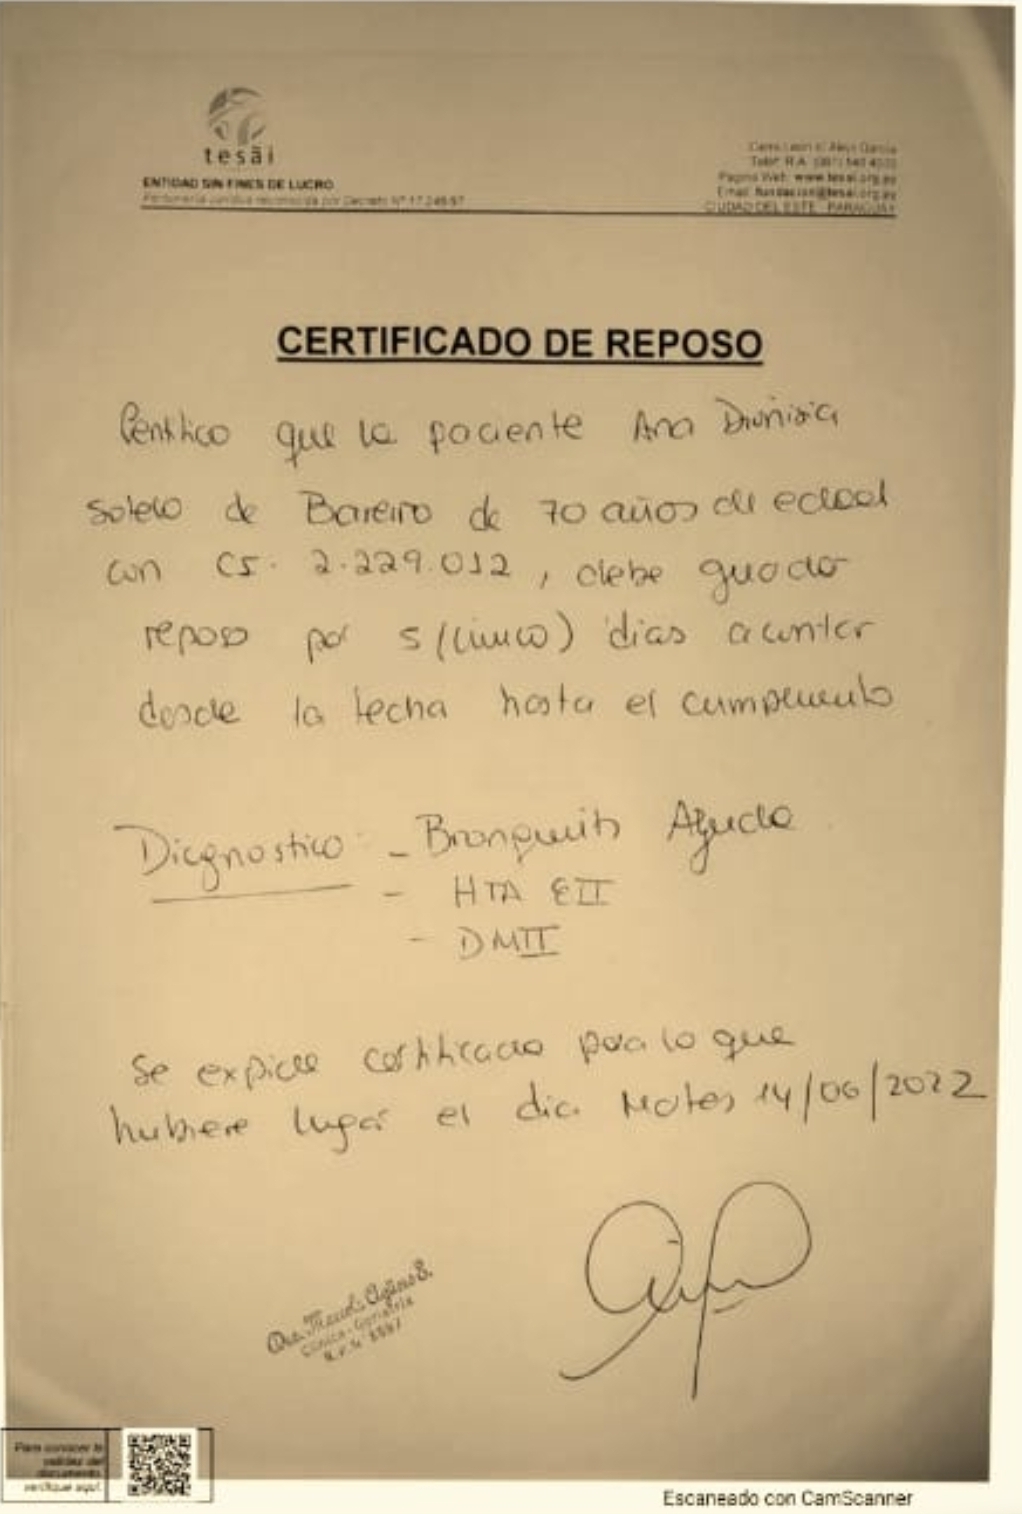 tesãi
ENTIDAD SIN FINES DE LUCRO
Personería Jurídica reconocida por Decreto Nº 17.249/97
Pagina Web: www.tesai.org.py
Email: fundacion@tesai.org.py
CIUDAD DEL ESTE - PARAGUAY
CERTIFICADO DE REPOSO
Certifico que la paciente Ana Dionisia
Sotelo de Bareiro de 70 años de edad
con CI. 2.229.012, debe guardar
reposo por 5 (cinco) dias a contar
desde la fecha hasta el cumplimiento
Diagnostico: - Bronquitis Aguda
- HTA EII
- DMII
Se expide certificado para lo que
hubiere lugar el dia Martes 14/06/2022
Dra.
Clínica - Geriatría
Para conocer la
validez del
documento,
verifique aquí.
Escaneado con CamScanner